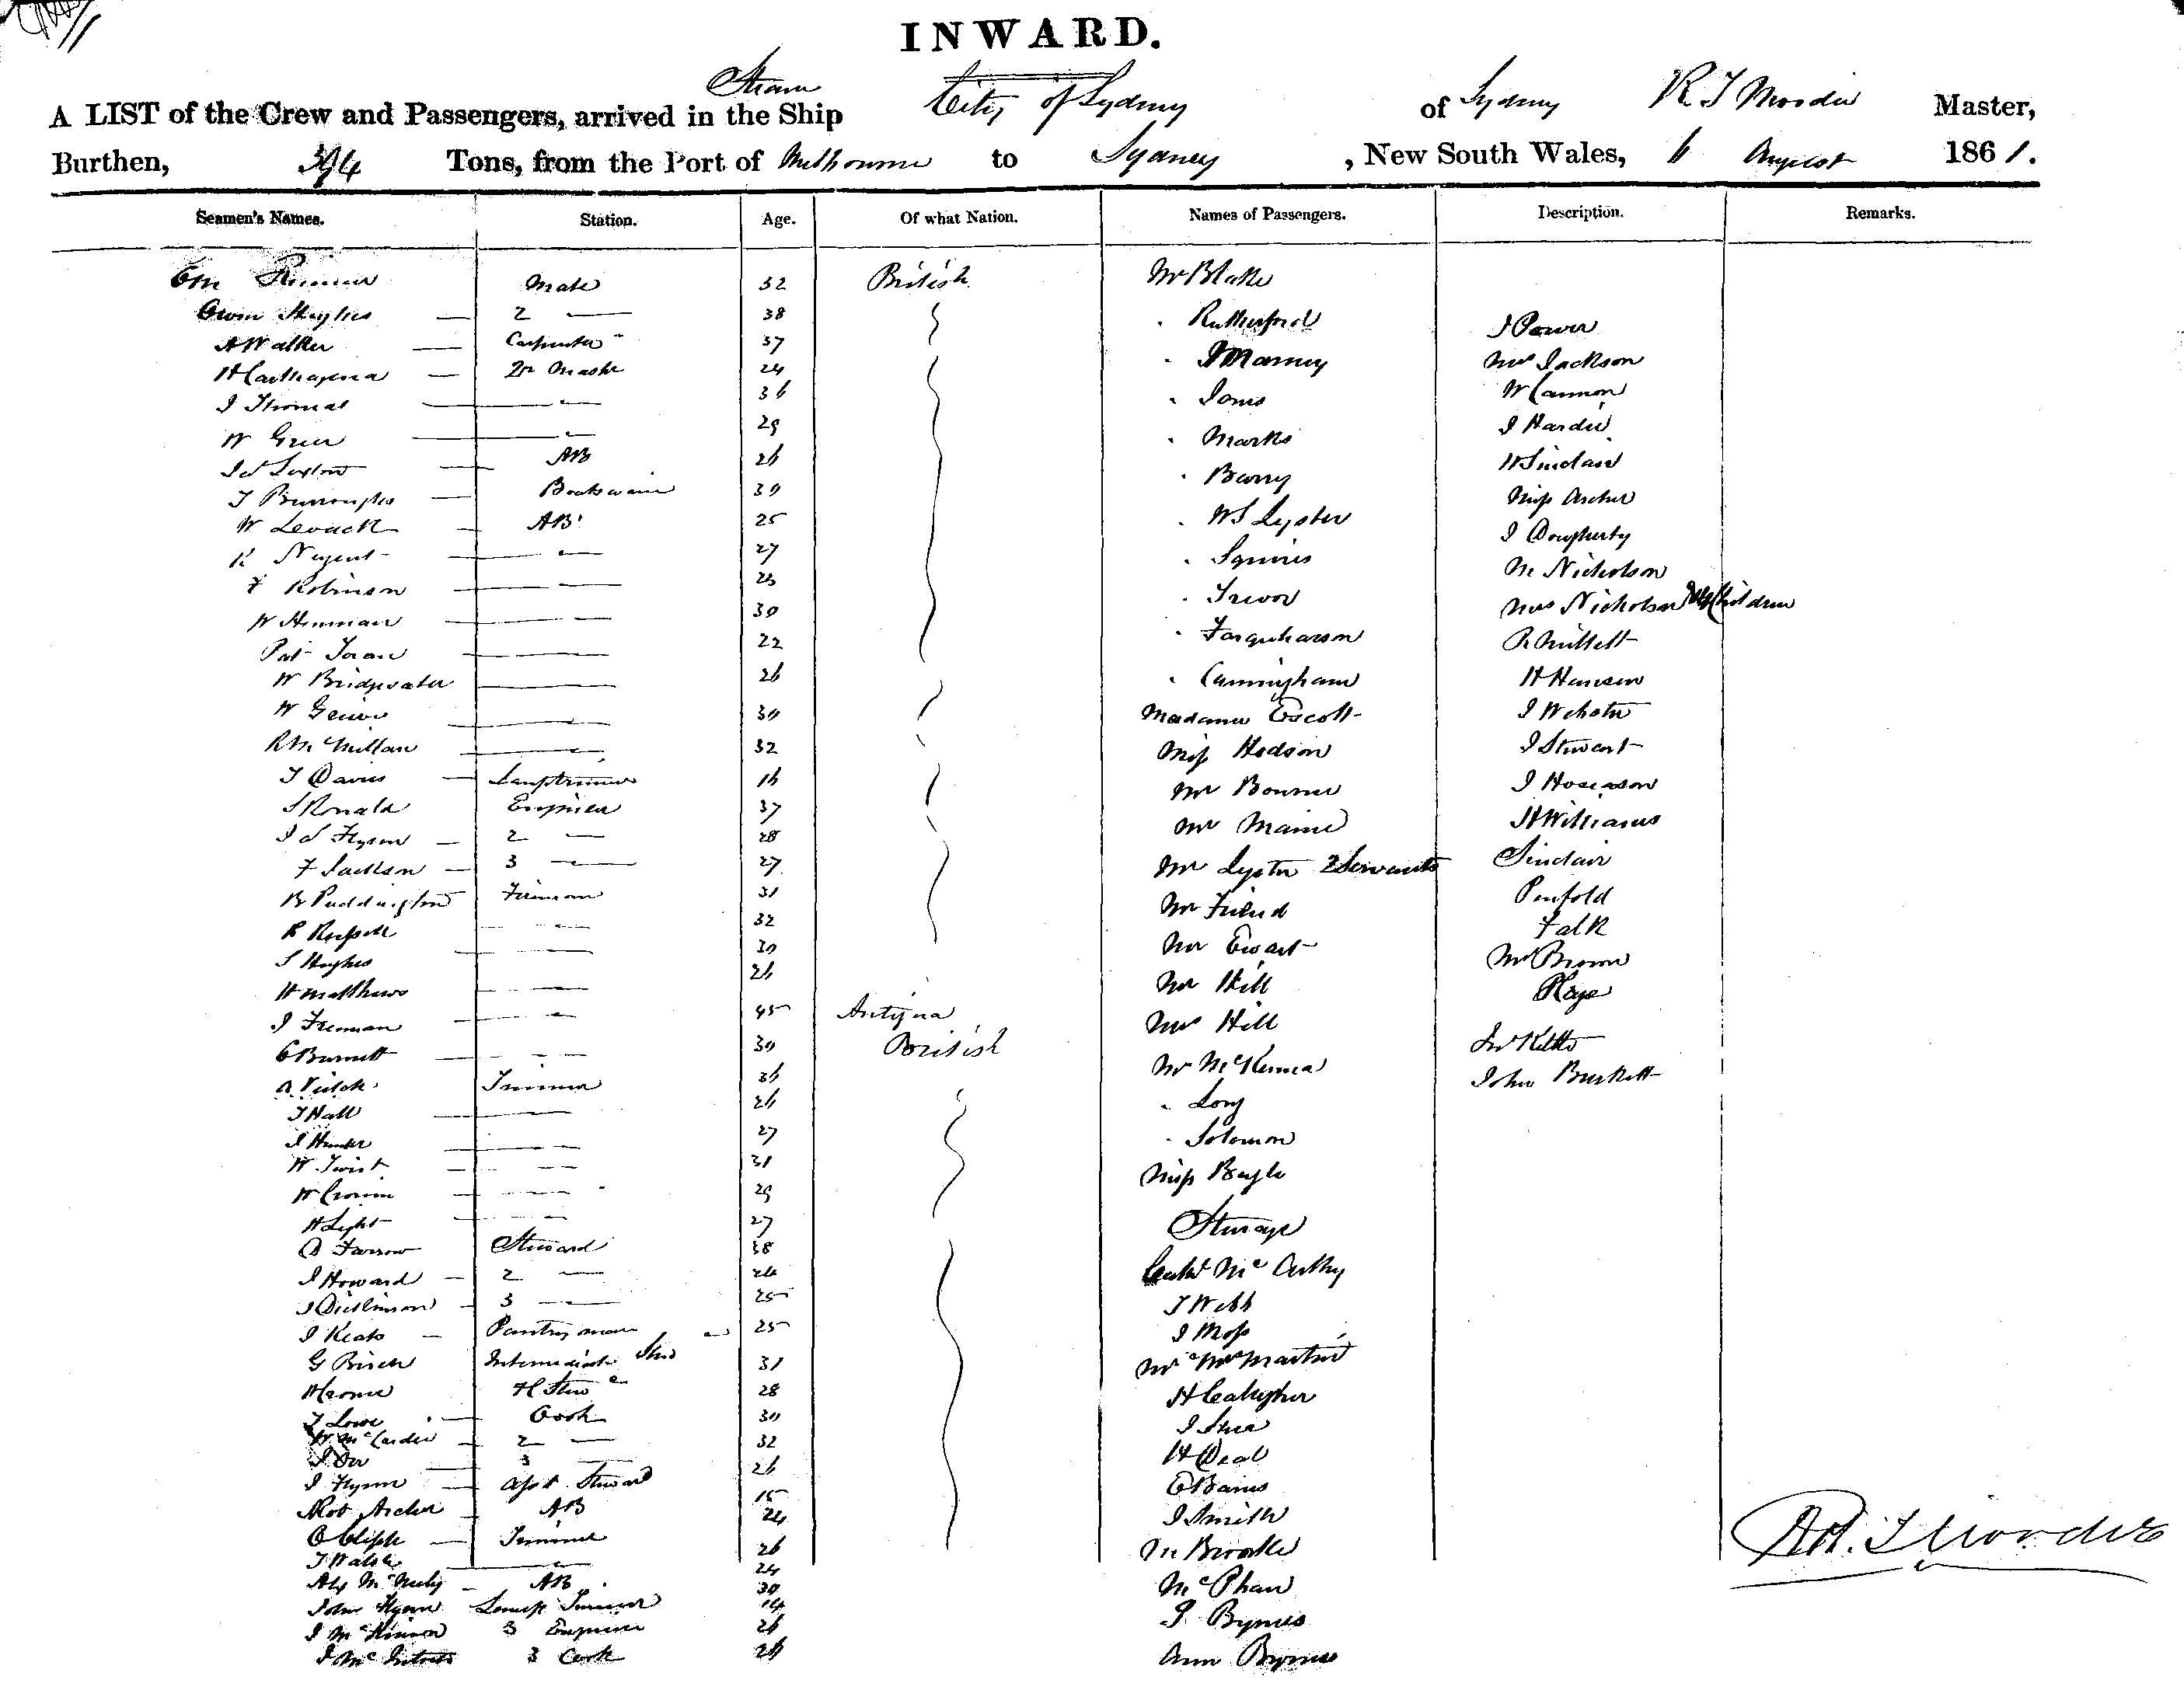 INWARD.
Steam
A LIST of the Crew and Passengers, arrived in the Ship City of Sydney of Sydney R T Moodie Master,
Burthen, 394 Tons, from the Port of Melbourne to Sydney, New South Wales, 6 August 1861.
Seamen's Names. Station. Age. Of what Nation. Names of Passengers. Description. Remarks.
Mate 32 British Mr Blake
Owen Hughes — 2 — 38 Rutherford J Power
A Walker — Carpenter 37 Mrs Jackson
H Carthagena — 24 W Cannon
J Thomas — 36 Jones J Hardie
W Greer — 29 Marks H Sinclair
AB 26 Barry Miss Archer
T Burroughs — Boatswain 30 W S Lyster J Dougherty
W Levack — AB 25 Squires M Nicholson
R Nugent — 27 Trevor Mrs Nicholson Children
F Robinson — 23 Farquharson R Millett
W — 30 Cunningham H Hansen
Pat — 22 Madame Escott J Webster
W Bridgwater 26 Miss Hodson J Stewart
W 30 Mr Bourne J
R McMillan 32 Mr H Williams
T Davies — Lamptrimmer 16 Mr Lyster 2 Servants Sinclair
J Ronald Engineer 37 Mr Friend Penfold
J S Flynn — 2 — 28 Mr Ewart Falk
F Jackson — 3 — 27 Mr Hill Mr Brown
B Puddington Fireman 31 Mrs Hill
R Russell 32 Mr McKenna Jno Kitto
S Hughes 30 Long John Burkett
H Matthews 26 Solomon
J Freeman 45 Antigua Miss Bayle
C Burnett 30 British Steerage
A Veitch Trimmer 36 McCarthy
T Hall 26 T Webb
J Hunter 27 J Moss
W Twist 31 Mr & Mrs Martin
W Cronin 29 H
H Light 27 J Shea
A Farrow Steward 38 H Deal
J Howard — 2 — 24 E Banus
J Dickinson — 3 — 25 J Smith
J Keats — Pantryman 25 M
G Birch Intermediate Stwd 31 McPhan
28 P Byrnes
T Lowe — Cook 30 Ann Byrnes
W McCardie — 2 — 32
J Orr — 3 — 26
J Flynn — Asst Steward 15
Rob Archer — AB 24
Trimmer 26
T Walsh 24
Alex — AB 30
John Flynn 14
J McKinnon 3 Engineer 26
J McIntosh 3 Cook 26
R T Moodie